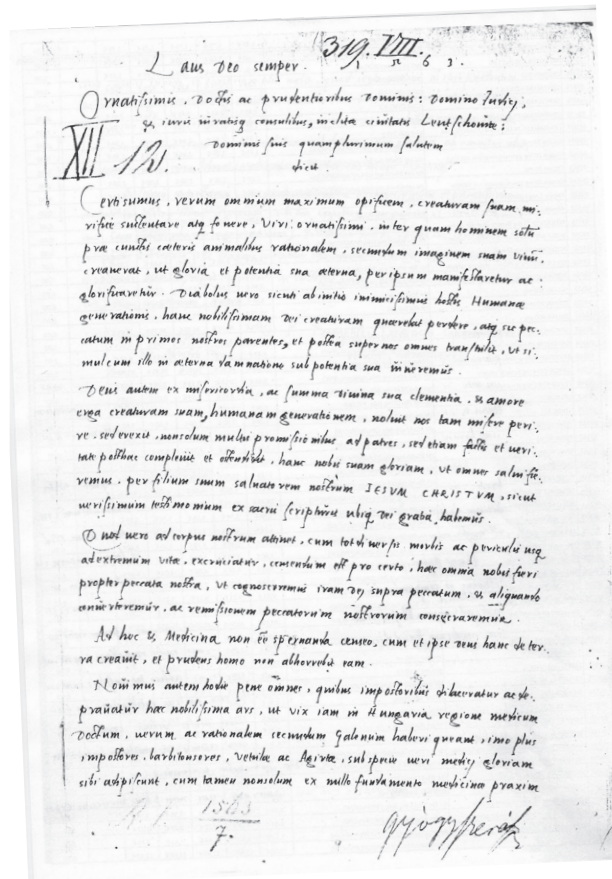 319. VIII.
Laus Deo semper. 1 5 6 3.
Ornatissimis, Doctis ac prudentioribus Dominis: Domino Iudici,
& iuratisq consulibus, inclitæ ciuitatis Leutschouiæ:
Dominis suis quamplurimum salutem
dicit.
XII 12.
Certissimus, verum omnium maximum opificem, creaturam suam mi-
rificè sustentare atq fouere, Viri ornatissimi. inter quam hominem solū
præ cunctis cæteris animalibus rationalem, secundum imaginem suam
creauerat, ut gloria et potentia sua æterna, per ipsum manifestaretur ac
glorificaretur. Diabolus uero sicuti ab initio inimicissimus hostis Humanæ
generationis, hanc nobilissimam dei creaturam quærebat perdere, atq sic pec-
catum in primos nostros parentes, et postea super nos omnes transtulit, ut si-
mul cum illo in æterna damnatione sub potentia sua
Deus autem ex misericordia, ac summa diuina sua clementia, & amore
erga creaturam suam, humanam generationem, noluit nos tam misere peri-
re. sed erexit, non solum multis promissionibus ad patres, sed etiam factis et ueri-
tate posthac compleuit et ostendit, hanc nobis suam gloriam, ut omnes salui fie-
remus. per filium suum saluatorem nostrum IESUM CHRISTVM, sicut
uerissimum testimonium ex sacris scripturis ubiq dei gratia habemus.
Quod uero ad corpus nostrum attinet, cum tot diuersis morbis ac periculis usq
ad extremum vitæ, excruciatur, censendum est pro certo, hæc omnia nobis fieri
propter peccata nostra, ut cognosceremus iram dei supra peccatum, & aliquando
conuerteremur, ac remissionem peccatorum nostrorum consequeremur.
Ad hoc & Medicina non eē spernanda censeo, cum et ipse deus hanc de ter-
ra creauit, et prudens homo non abhorrebit eam.
Nouimus autem hodie pene omnes, quibus impostoribus dilaceratur ac de-
prauatur hæc nobilissima ars, ut vix iam in Hungaria regione medicum
Doctum, uerum ac rationalem secundum Galenum haberi queant, imo plus
impostores, barbitonsores, vetulæ ac Agirtæ, sub specie ueri medici gloriam
sibi adipiscunt, cum tamen non solum ex nullo fundamento medicinæ praxim
1563
7.